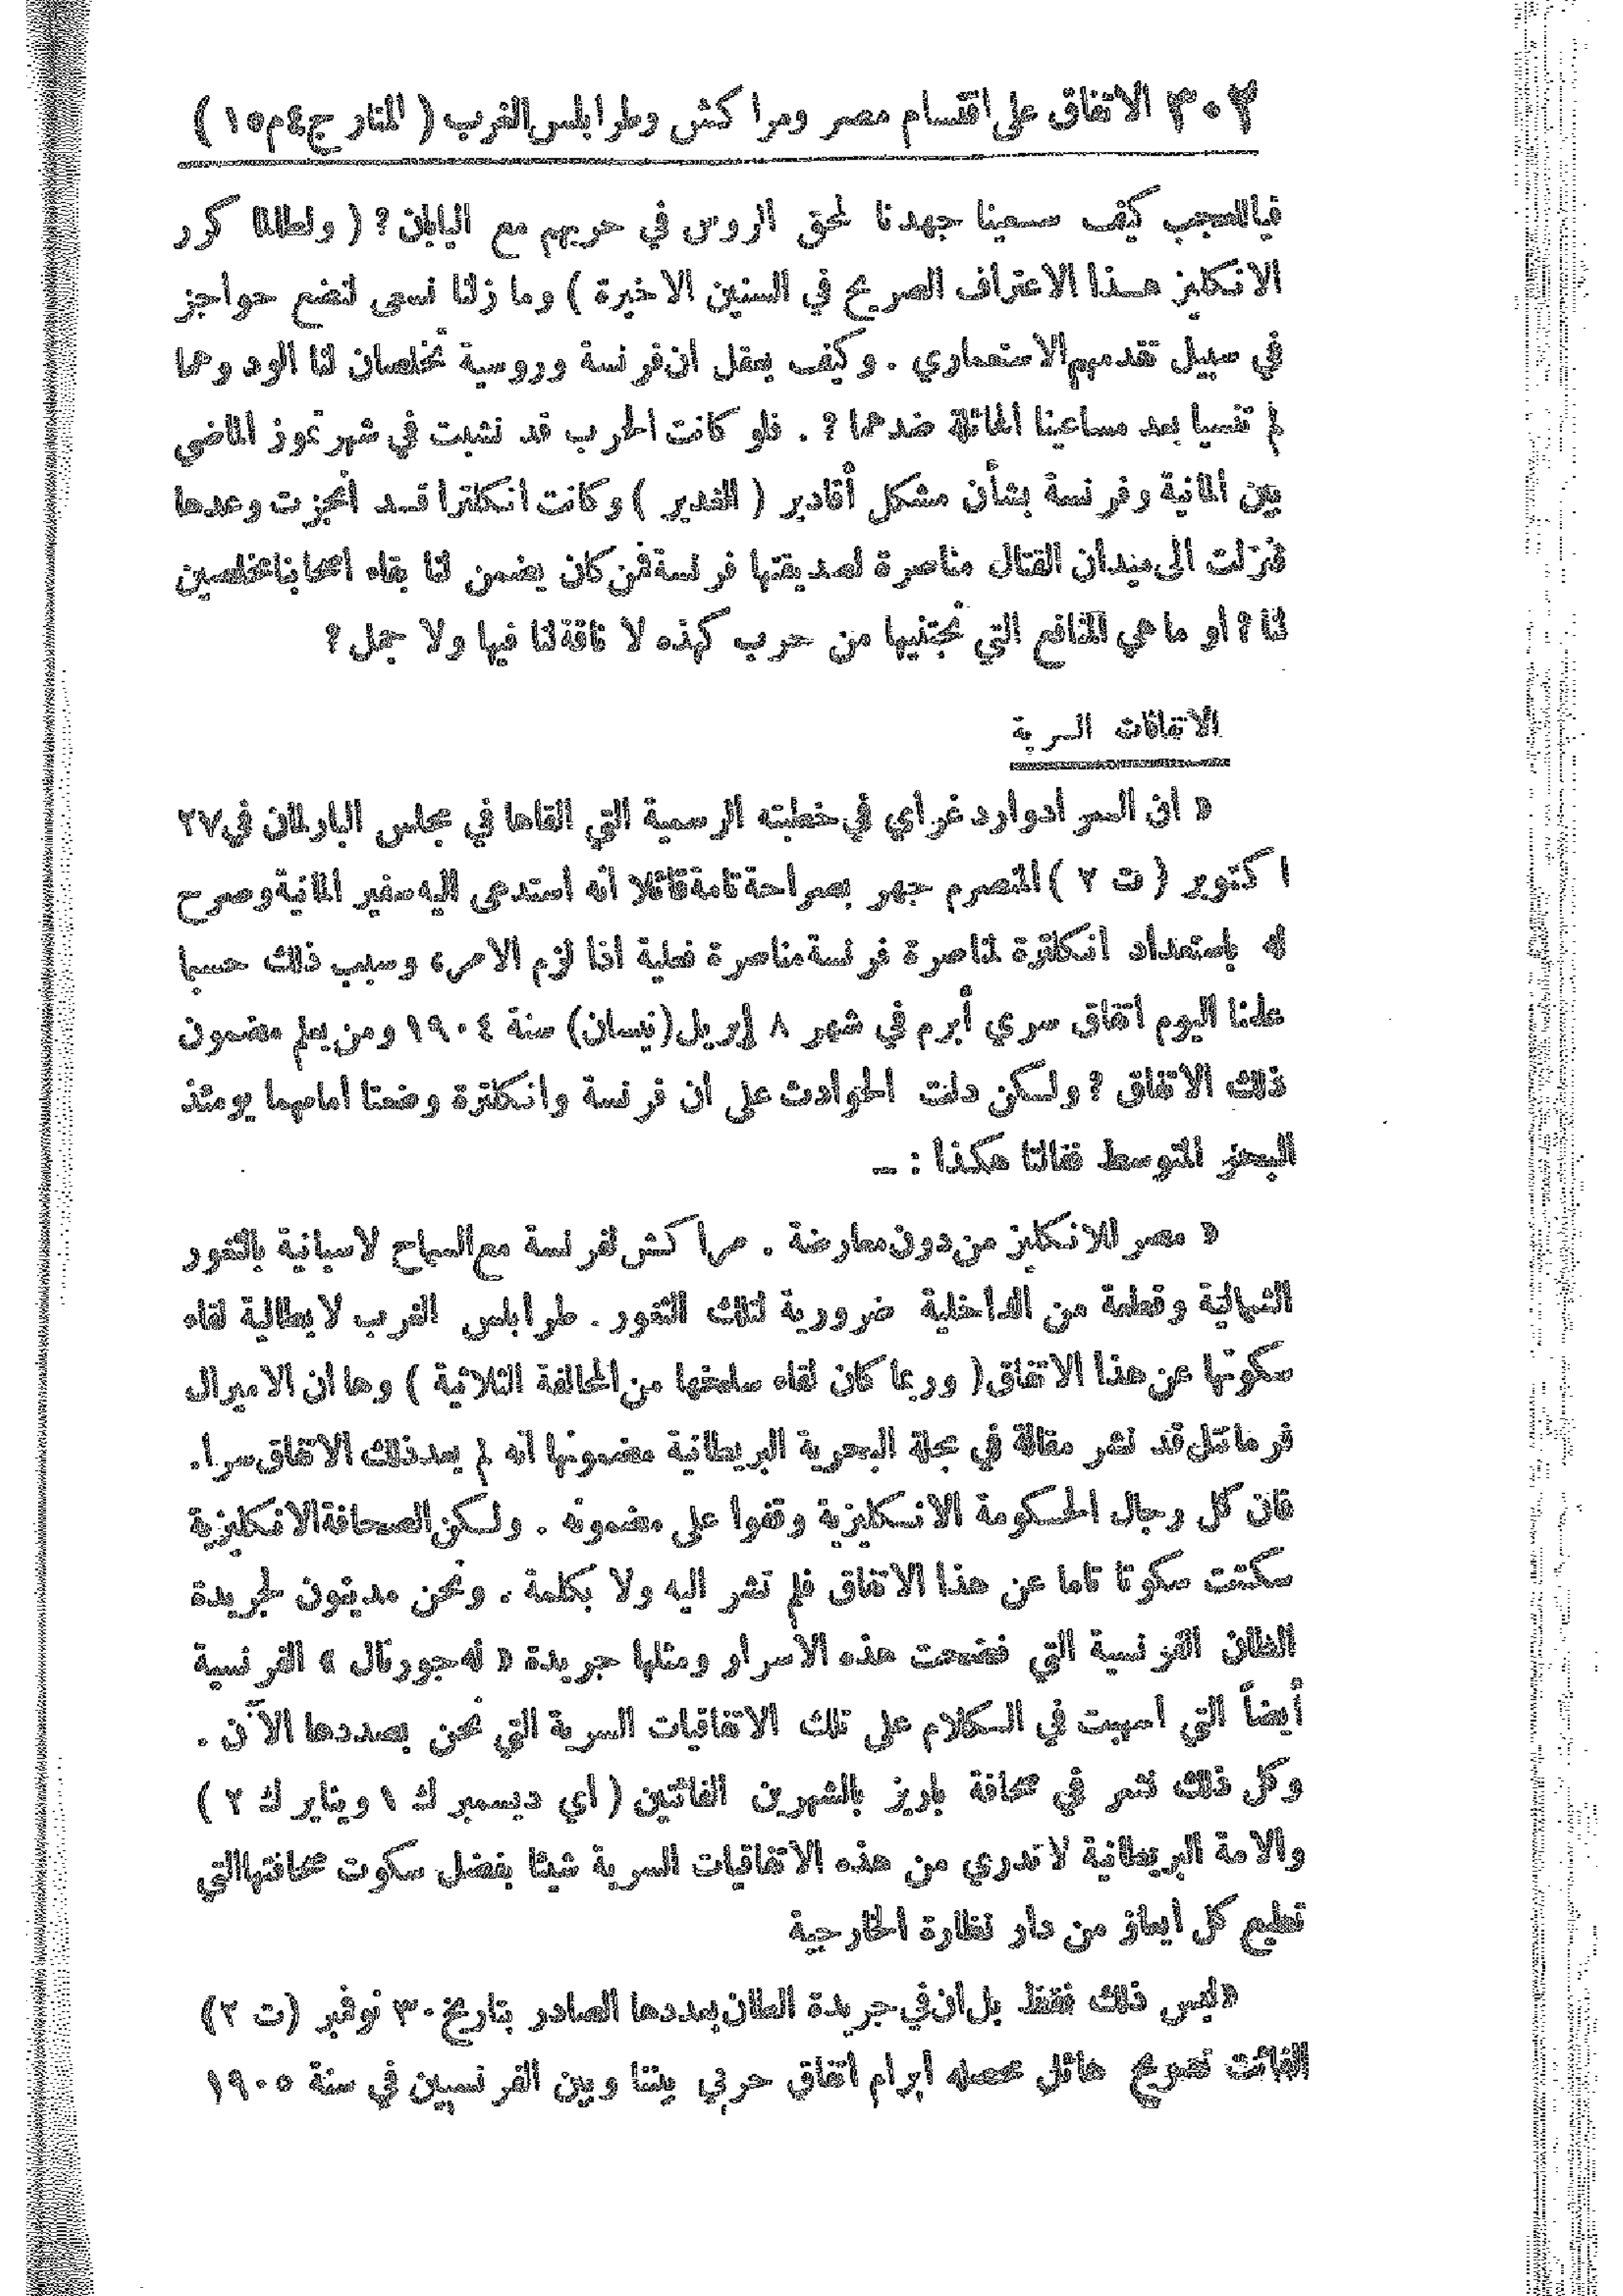 ٣٠٢ الاتفاق على اقتسام مصر ومراكش وطرابلس الغرب ( المنار ج٤م١٥ )
فيا للعجب كيف سعينا جهدنا لمحق الروس في حربهم مع اليابان ؟ ( ولطالما كرر
الانكليز هذا الاعتراف الصريح في السنين الاخيرة ) وما زلنا نسعى لنضع حواجز
في سبيل تقدمهم الاستعماري . وكيف يعقل ان فرنسة وروسية تخلصان لنا الود وهما
لم تنسيا بعد مساعينا الهائلة ضدهما ؟ . فلو كانت الحرب قد نشبت في شهر تموز الماضي
بين المانية وفرنسة بشأن مشكل أقادير ( الغدير ) وكانت انكلترا قد انجزت وعدها
فنزلت الى ميدان القتال مناصرة لصديقتها فرنسة فمن كان يضمن لنا بقاء اصحابنا مخلصين
لنا ؟ او ما هي المنافع التي نجتنيها من حرب كهذه لا ناقة لنا فيها ولا جمل ؟
الاتفاقات السرية
« ان السر ادوارد غراي في خطبته الرسمية التي القاها في مجلس البارلمان في ٢٧
اكتوبر ( ت ٢ ) المنصرم جهر بصراحة تامة قائلا انه استدعى اليه سفير المانية وصرح
له باستعداد انكلترة لمناصرة فرنسة مناصرة فعلية اذا لزم الامر، وسبب ذلك حسبما
علمنا اليوم اتفاق سري أبرم في شهر ٨ إبريل (نيسان) سنة ١٩٠٤ ومن يعلم مضمون
ذلك الاتفاق ؟ ولكن دلت الحوادث على ان فرنسة وانكلترة وضعتا أمامهما يومئذ
البحر المتوسط فقالتا هكذا : ــ
« مصر للانكليز من دون معارضة . مراكش لفرنسة مع السماح لاسبانية بالثغور
الشمالية وقطعة من الداخلية ضرورية لتلك الثغور . طرابلس الغرب لايطالية لقاء
سكوتها عن هذا الاتفاق ( وربما كان لقاء سلخها من المحالفة الثلاثية ) وها ان الاميرال
فرمانتل قد نشر مقالة في مجلة البحرية البريطانية مضمونها انه لم يعد ذلك الاتفاق سرا.
فان كل رجال الحكومة الانكليزية وقفوا على مضمونه . ولكن الصحافة الانكليزية
سكتت سكوتا تاما عن هذا الاتفاق فلم تشر اليه ولا بكلمة . ونحن مدينون لجريدة
الطان الفرنسية التي فضحت هذه الأسرار ومثلها جريدة « له جورنال » الفرنسية
أيضاً التي اسهبت في الكلام على تلك الاتفاقيات السرية التي نحن بصددها الآن .
وكل ذلك نشر في صحافة باريز بالشهرين الفائتين ( اي ديسمبر ك ١ ويناير ك ٢ )
والامة البريطانية لا تدري من هذه الاتفاقيات السرية شيئا بفضل سكوت صحافتها التي
تطيع كل ايعاز من دار نظارة الخارجية
«ليس ذلك فقط بل ان في جريدة الطان بعددها الصادر بتاريخ ٣٠ نوفمبر (ت ٢)
الفائت تصريح هائل محصله ابرام اتفاق حربي بيننا وبين الفرنسيين في سنة ١٩٠٥